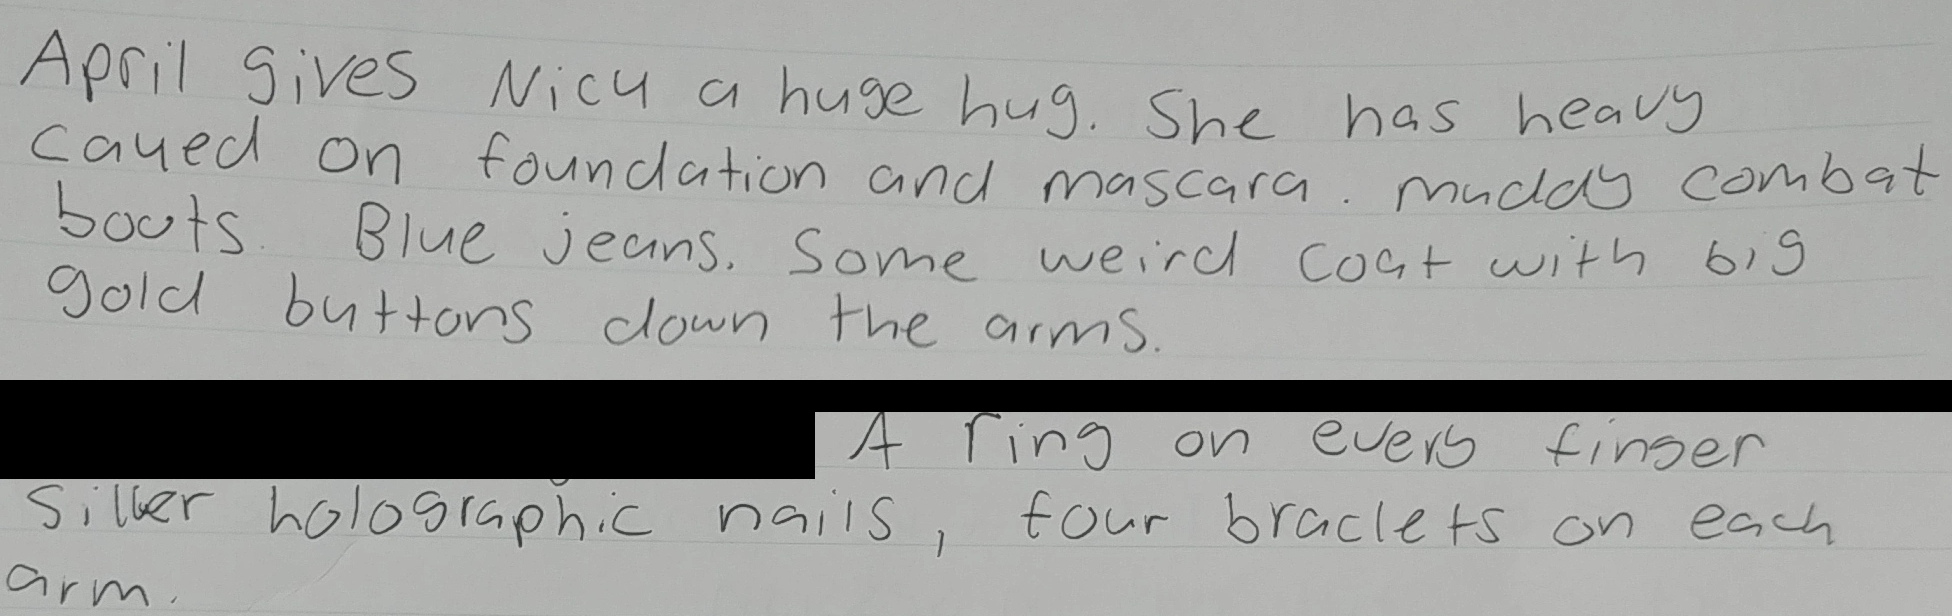 April gives Nicu a huge hug. She has heavy
caued on foundation and mascara. muddy combat
boots. Blue jeans. Some weird coat with big
gold buttons down the arms.
A ring on every finger
Silver holographic nails, four braclets on each
arm.